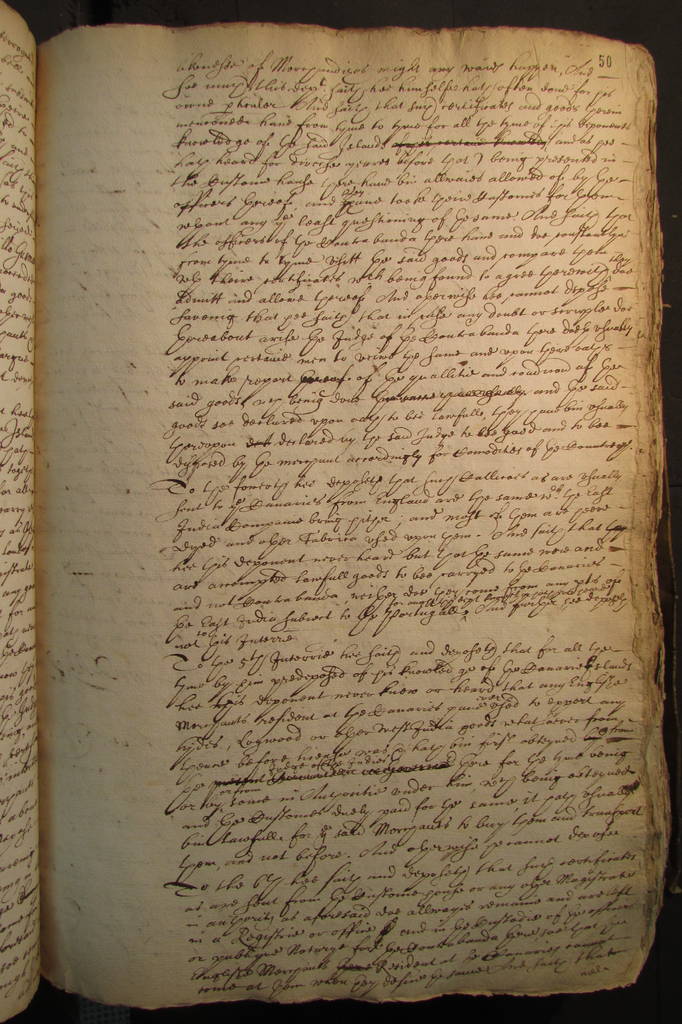 50
likenesse of Merchandizes might any wayes happen, And
hee this depo.t saith, hee himselfe hath often done for his
owne pticuler. And saith that such certificates and goods therein
menconed have from tyme to tyme for all the tyme of this deponents
knowledge of the said Islands and as hee
hath heard for diverse yeares before that, being presented in
the Custome house there have bin allwaies allowed of by the
officers thereof, and they have tooke theire Customes for them
without any the least questioning of the same. And saith that
the officers of the Contrabanda there have and doe constantly
from tyme to tyme visitt the said goods and compare them
with theire certificates which being found to agree therewith they doe
admitt and allowe thereof And otherwise hee cannot depose
saveing that hee saith, that in case any doubt or scruple doe
thereabout arise the Judge of the Contrabanda there doth usually
appoint certaine men to veiwe the same and upon their oaths
to make report of the quallitie and condicon of the
said goods, which being done and the said
goods soe declared upon oath to bee lawfull, they have bin usually
thereupon declared by the said Judge to bee good and to bee
disposed by the merchant accordingly for Comodities of the Countrey.
To the fourth hee deposeth that such Callicoes as are usually
sent to the Canaries from England are the same w.ch the East
India Companie bring hither, and most of them are here
dyed and other Fabrica used upon them. And saith that
hee this deponent never heard but that the same were and
are accompted lawfull goods to bee carryed to the Canaries
and not Contrabanda, neither doe they come from any pts of
the East India subiect to the Portugalls And further hee deposeth
not to this Interrie
To the 5th Interrie hee saith and deposeth that for all the
tyme by him predeposed of his knowledge of the Canarie Islands
hee this deponent never knew or heard that any English
Merchants resident at the Canaries have used to export any
hydes, Logwood or other West India goods whatsoever from
thence before licence was hath bin first obteyned
the
or from some in Authoritie under him, which being obteyned
and the Customes duely paid for the same it hath usually
bin lawfull for the said Merchants to buy them and transport
them, and not before. And otherwise hee cannot depose
To the 6th hee saith and deposeth that such certificates
as are sent from the Custome house or any other Magistrate
in authority as aforesaid doe allwayes remaine and are left
in a Registrie or office and in the Custodie of the officer
or publique Notarye for the Contrabanda there soe that the
English Merchants Resident at the Canaries cannot
come at them when they desire the same And saith that